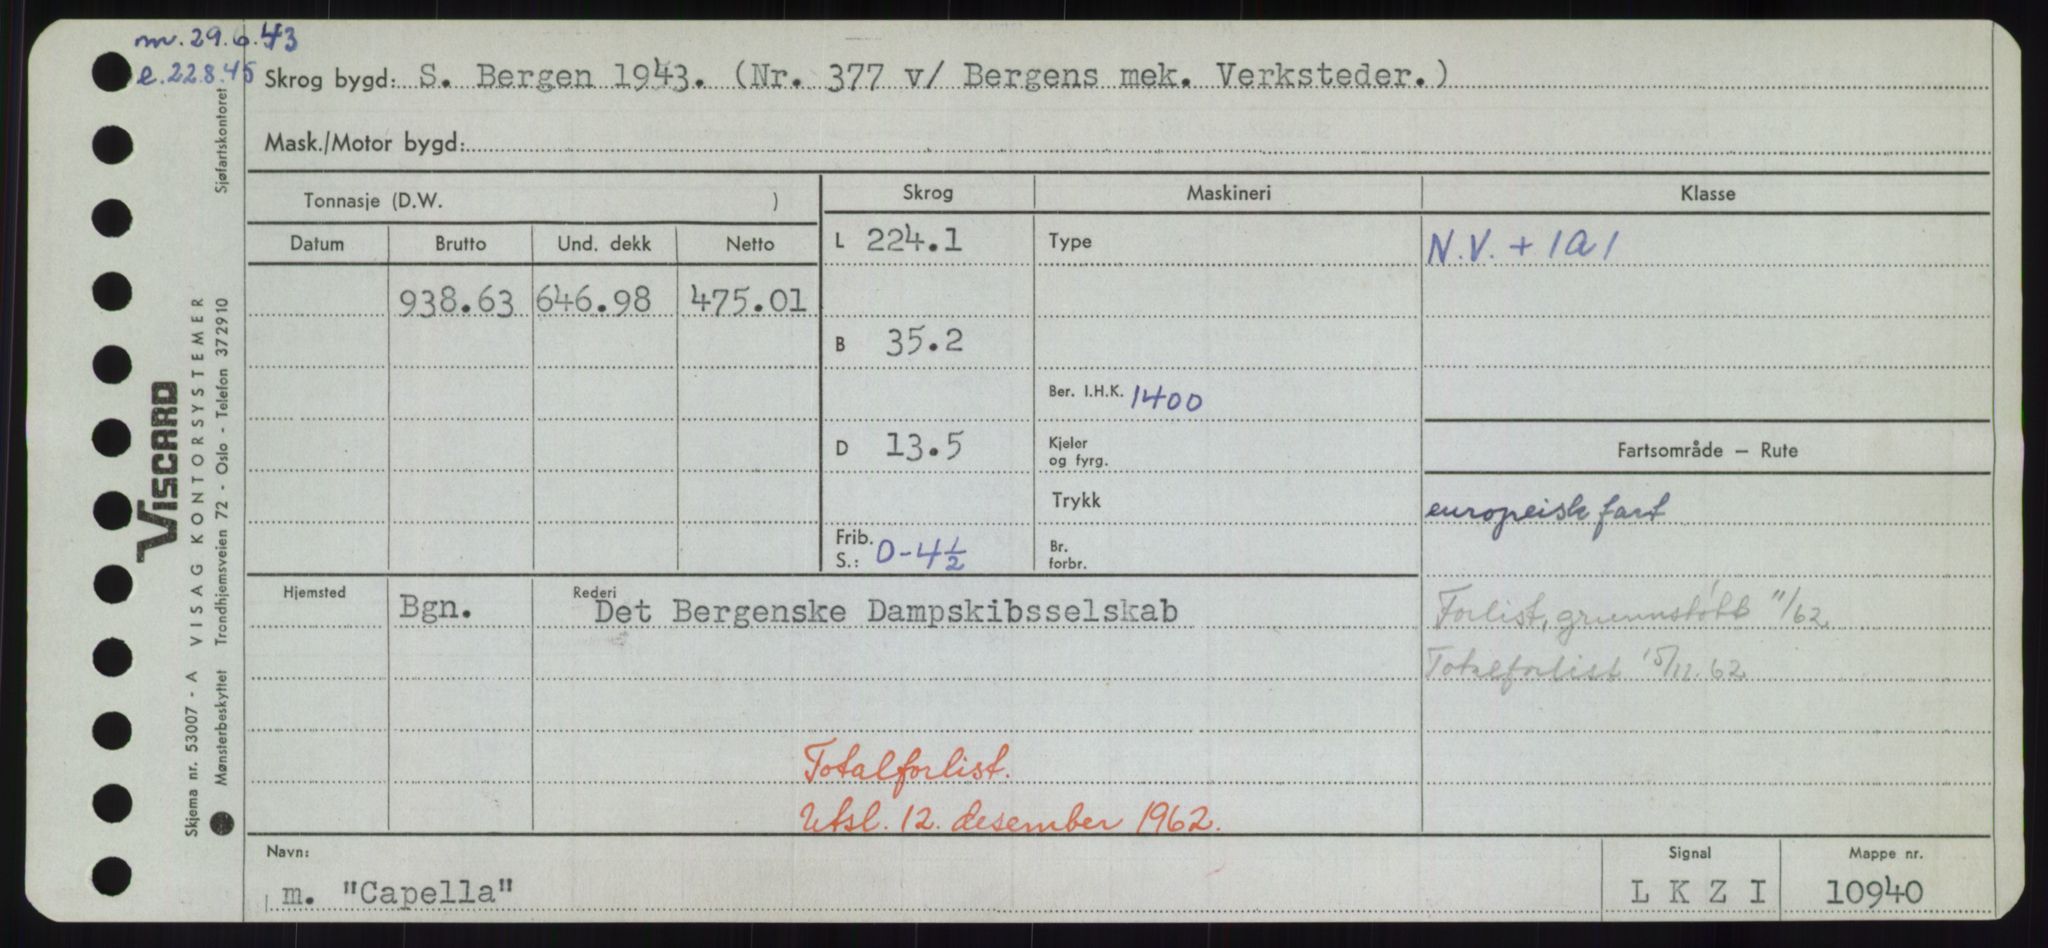 m. 29.6.43
e. 22.8.45
Skrog bygd: S. Bergen 1943. (Nr. 377 v/ Bergens mek. Verksteder.)
Mask./Motor bygd:
Tonnasje (D.W. )
Skrog
Maskineri
Klasse
Datum
Brutto
Und. dekk
Netto
L 224.1
Type
N.V. + 1A1
938.63 646.98 475.01
B 35.2
Ber. I.H.K. 1400
D 13.5
Kjeler
og fyrg.
Fartsområde — Rute
Trykk
europeisk fart
Frib.
S.: 0-4½
Br.
forbr.
Hjemsted
Bgn.
Rederi
Det Bergenske Dampskibsselskab
Forlist, grunnstøtt "/62
Totalforlist 15/11.62
Totalforlist.
Utsl. 12. desember 1962.
Navn:
m. "Capella"
Signal
L K Z I
Mappe nr.
10940
Sjøfartskontoret
VISCARD
VISAG KONTORSYSTEMER
Skjema nr. 53007 - A
Mønsterbeskyttet Trondhjemsveien 72 - Oslo - Telefon 372910